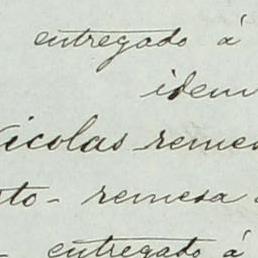 entregado á
idem
Nicolas remes
to - remesa
- entregado á